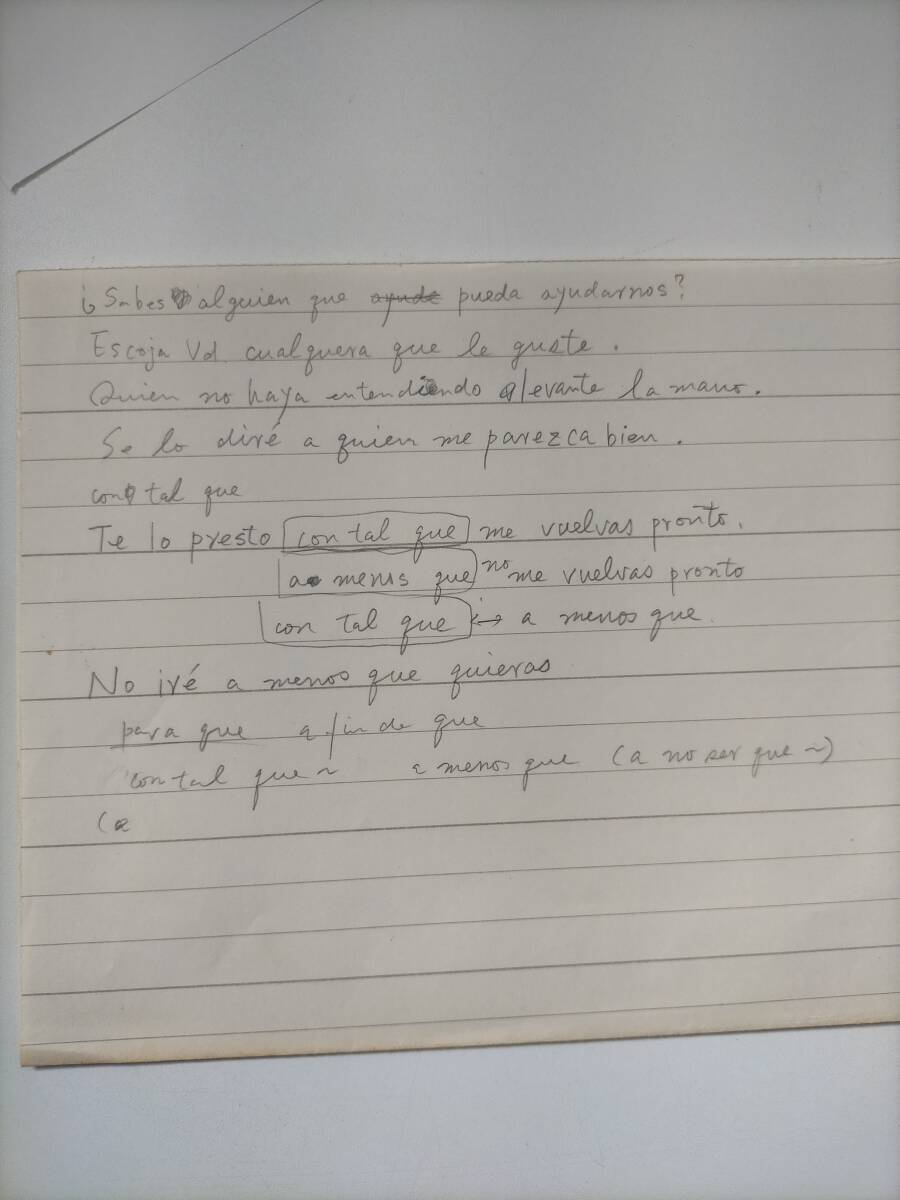 ¿Sabes alguien que ayude pueda ayudarnos?
Escoja Vd. cualquera que le guste.
Quien no haya entendiendo levante la mano.
Se lo diré a quien me parezca bien.
con tal que
Te lo presto con tal que me vuelvas pronto.
a menis que no me vuelvas pronto
con tal que ↔ a menos que
No iré a menos que quieras
para que a fin de que
con tal que ~ a menos que (a no ser que ~)
(a